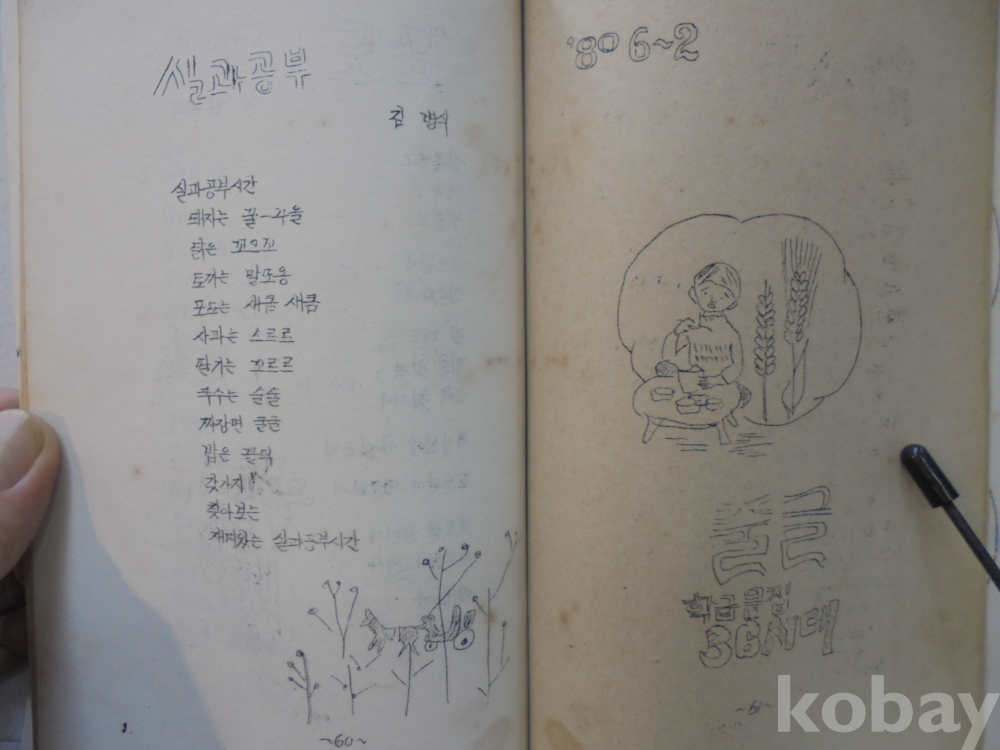 씰과공부
김
실과공부시간
돼지는 꿀-꾸울
닭은 꼬으꼬
토끼는 말또옹
포도는 새콤 새콤
사과는 스르르
딸기는 꼬르르
국수는 술술
짜장면 클클
밥은 꼴딱
갖가지
찾아보는
재미있는 실과공부시간
~60~
'80 6~2
학급문집
36시대
~61~
kobay